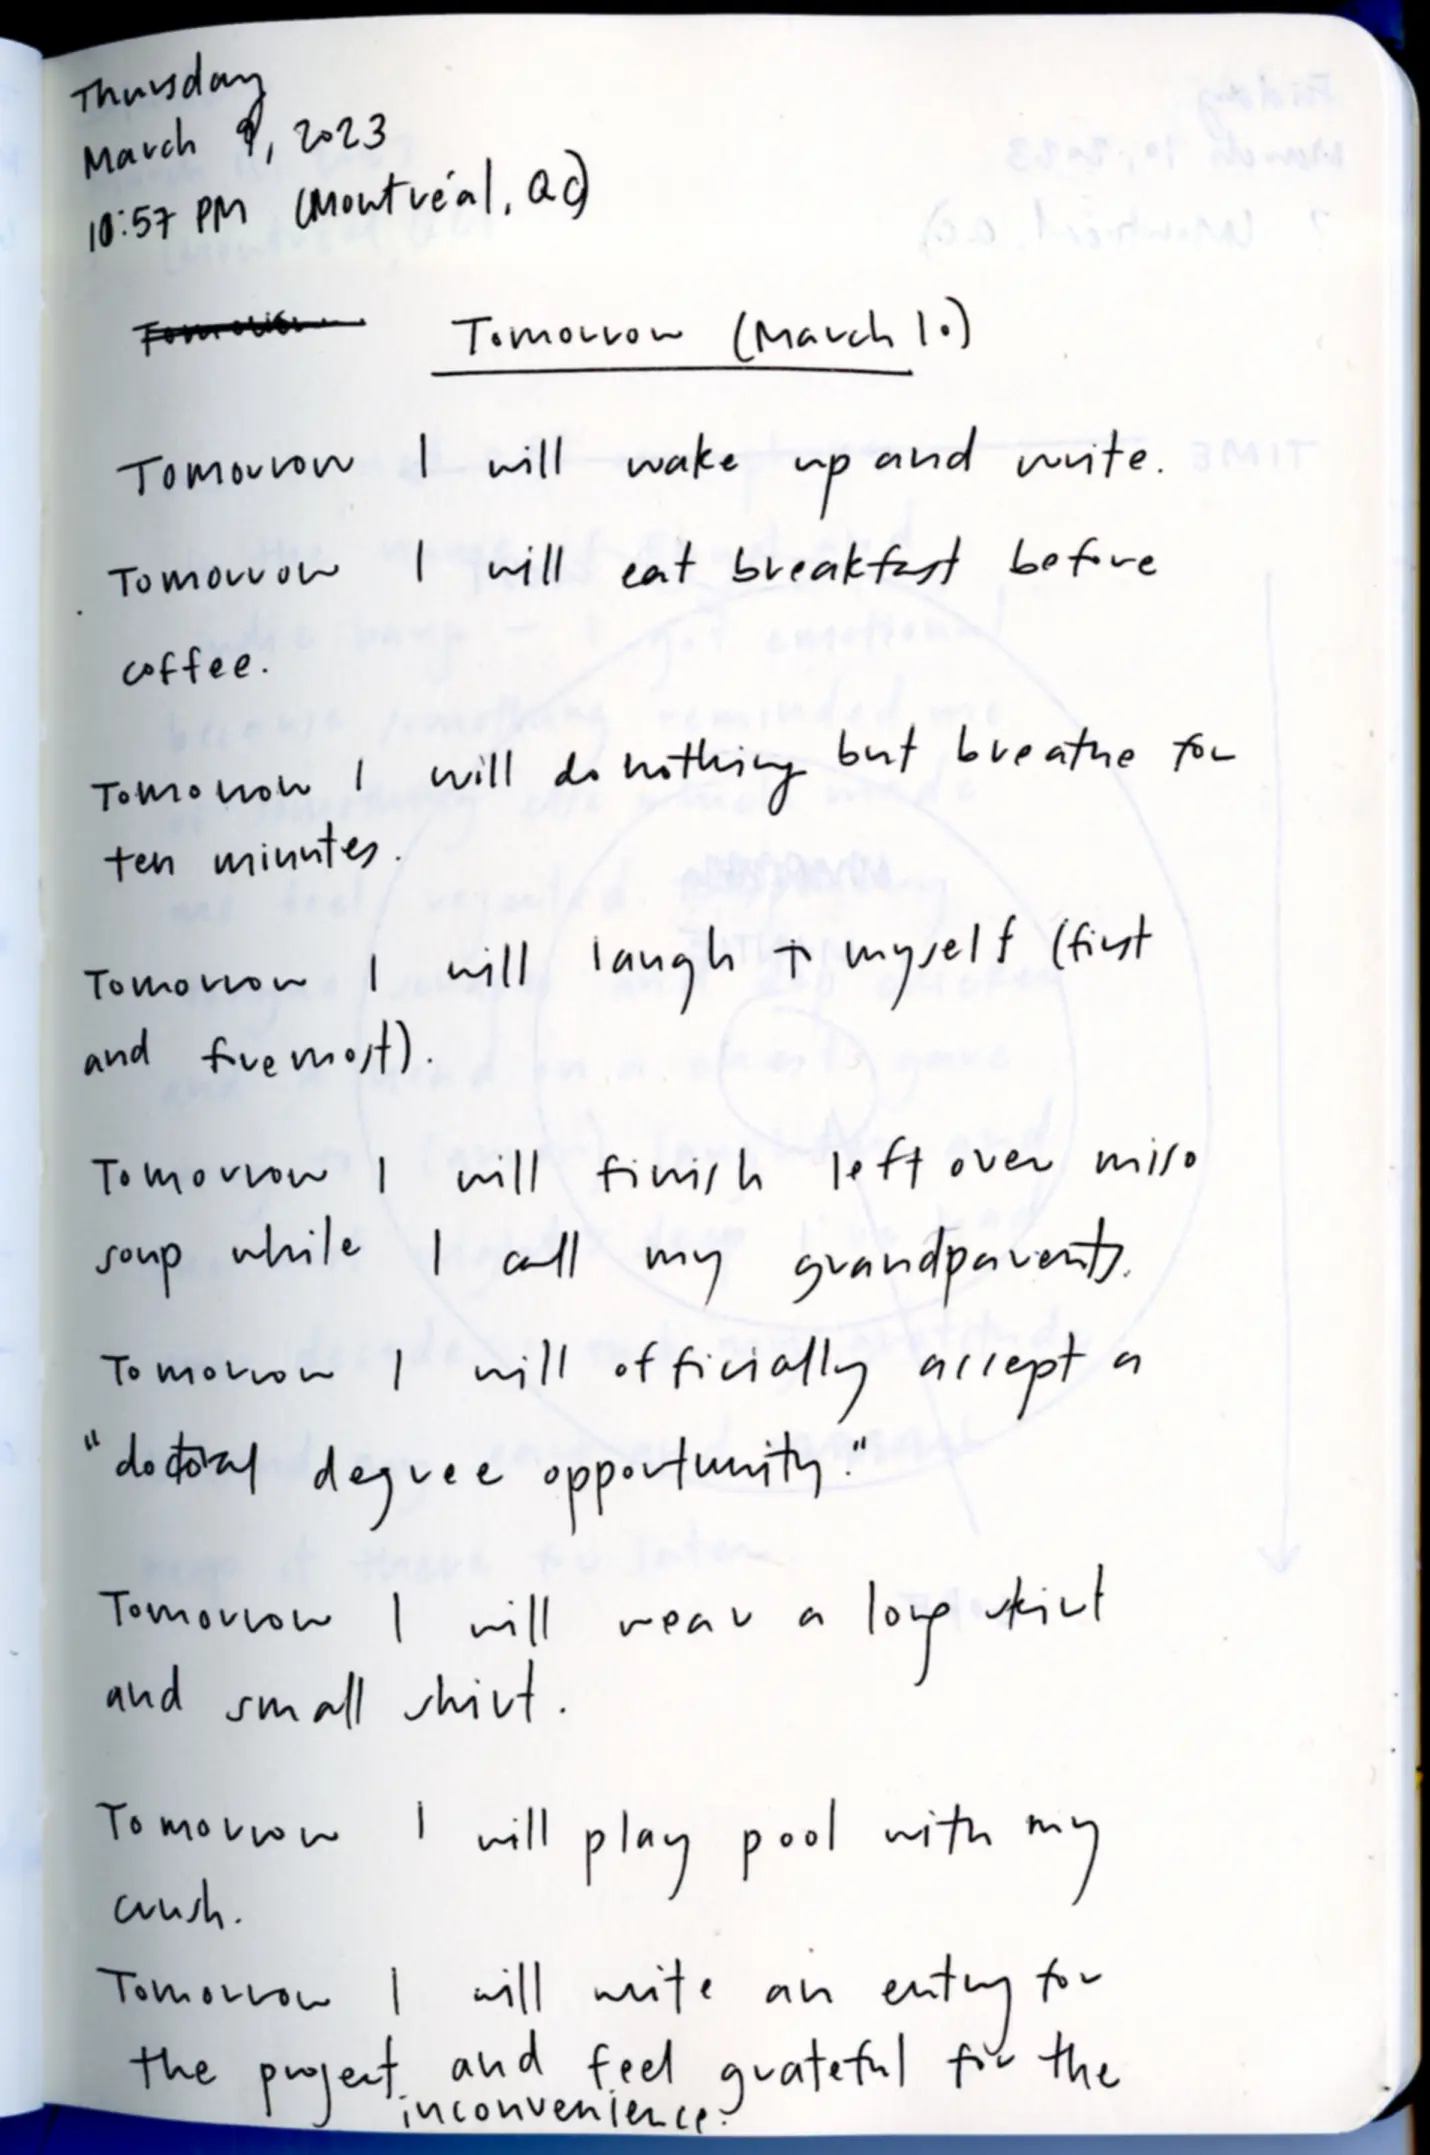 Thursday
March 9, 2023
10:57 PM (Montréal, QC)
Tomorrow (March 10)
Tomorrow I will wake up and write.
Tomorrow I will eat breakfast before
coffee.
Tomorrow I will do nothing but breathe for
ten minutes.
Tomorrow I will laugh to myself (first
and foremost).
Tomorrow I will finish leftover miso
soup while I call my grandparents.
Tomorrow I will officially accept a
"doctoral degree opportunity."
Tomorrow I will wear a long skirt
and small shirt.
Tomorrow I will play pool with my
crush.
Tomorrow I will write an entry for
the project and feel grateful for the
inconvenience.